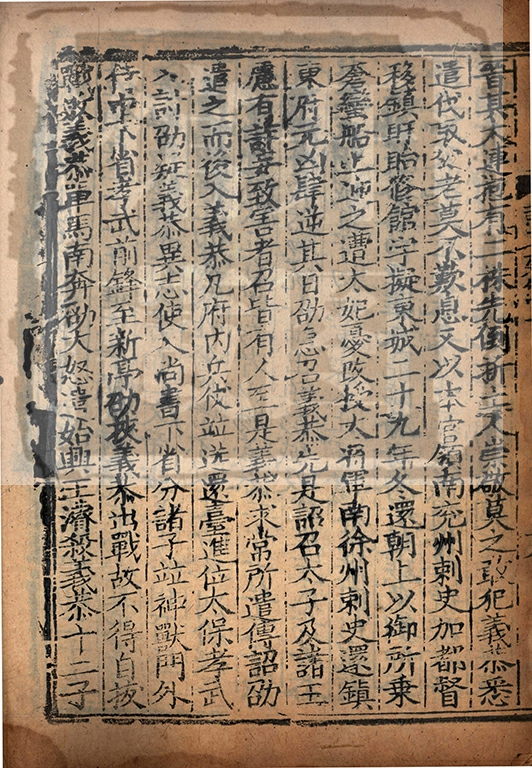 晉其大連抱有二株先倒折土人崇敬莫之敢犯義恭悉
遣伐取父老莫不歎息又以本官領南兗州刺史加都督
移鎮盱眙修館宇擬東城二十九年冬還朝上以御所乘
蒼鷹船上迎之遭太妃憂改授大將軍南徐州刺史還鎮
東府元凶肆逆其日劭急召義恭先是詔召太子及諸王
慮有詐妄致害者召皆有人至是義恭求常所遣傳詔劭
遣之而後入義恭凡府內兵仗竝送還臺進位太保孝武
入討劭疑義恭異志使入尚書下省分諸子竝神獸門外
侍中下省孝武前鋒至新亭劭挾義恭出戰故不得自拔
戰敗義恭單馬南奔劭大怒遣始興王濬殺義恭十二子